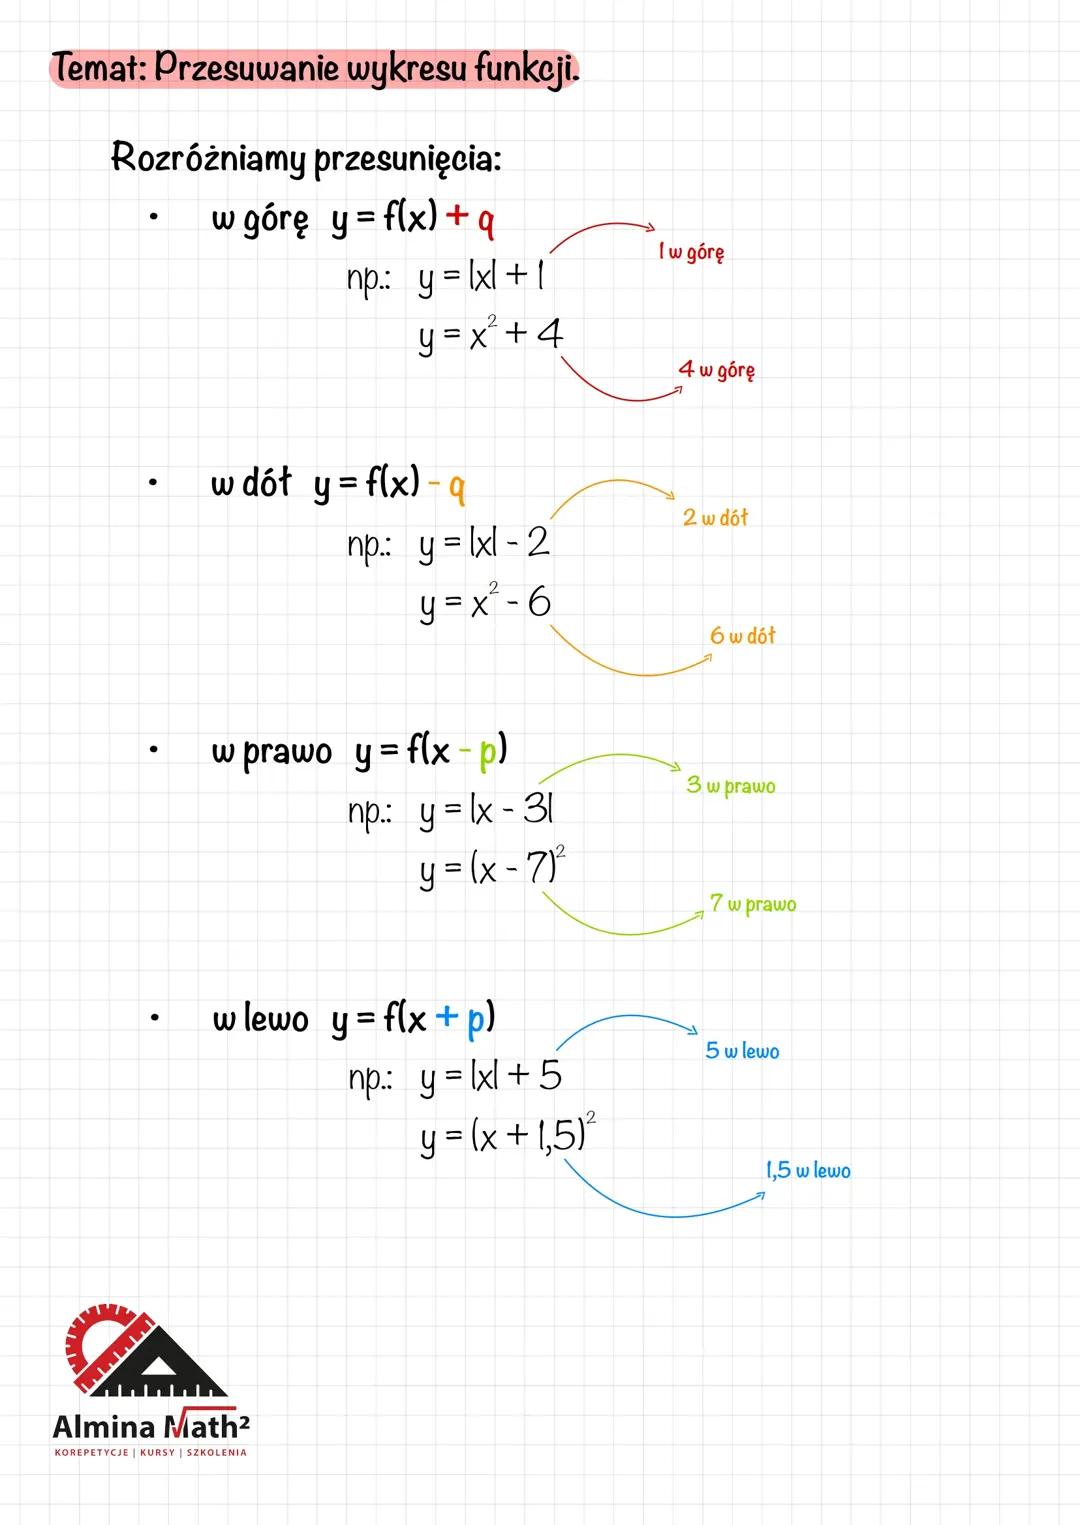 Temat: Przesuwanie wykresu funkcji.
Rozróżniamy przesunięcia:
• w górę y = f(x) + q
np.: y = |x| + 1
1 w górę
y = x² + 4
4 w górę
• w dół y = f(x) - q
np.: y = |x| - 2
2 w dół
y = x² - 6
6 w dół
• w prawo y = f(x - p)
np.: y = |x - 3|
3 w prawo
y = (x - 7)²
7 w prawo
• w lewo y = f(x + p)
np.: y = |x| + 5
5 w lewo
y = (x + 1,5)²
1,5 w lewo
Almina Math²
KOREPETYCJE | KURSY | SZKOLENIA